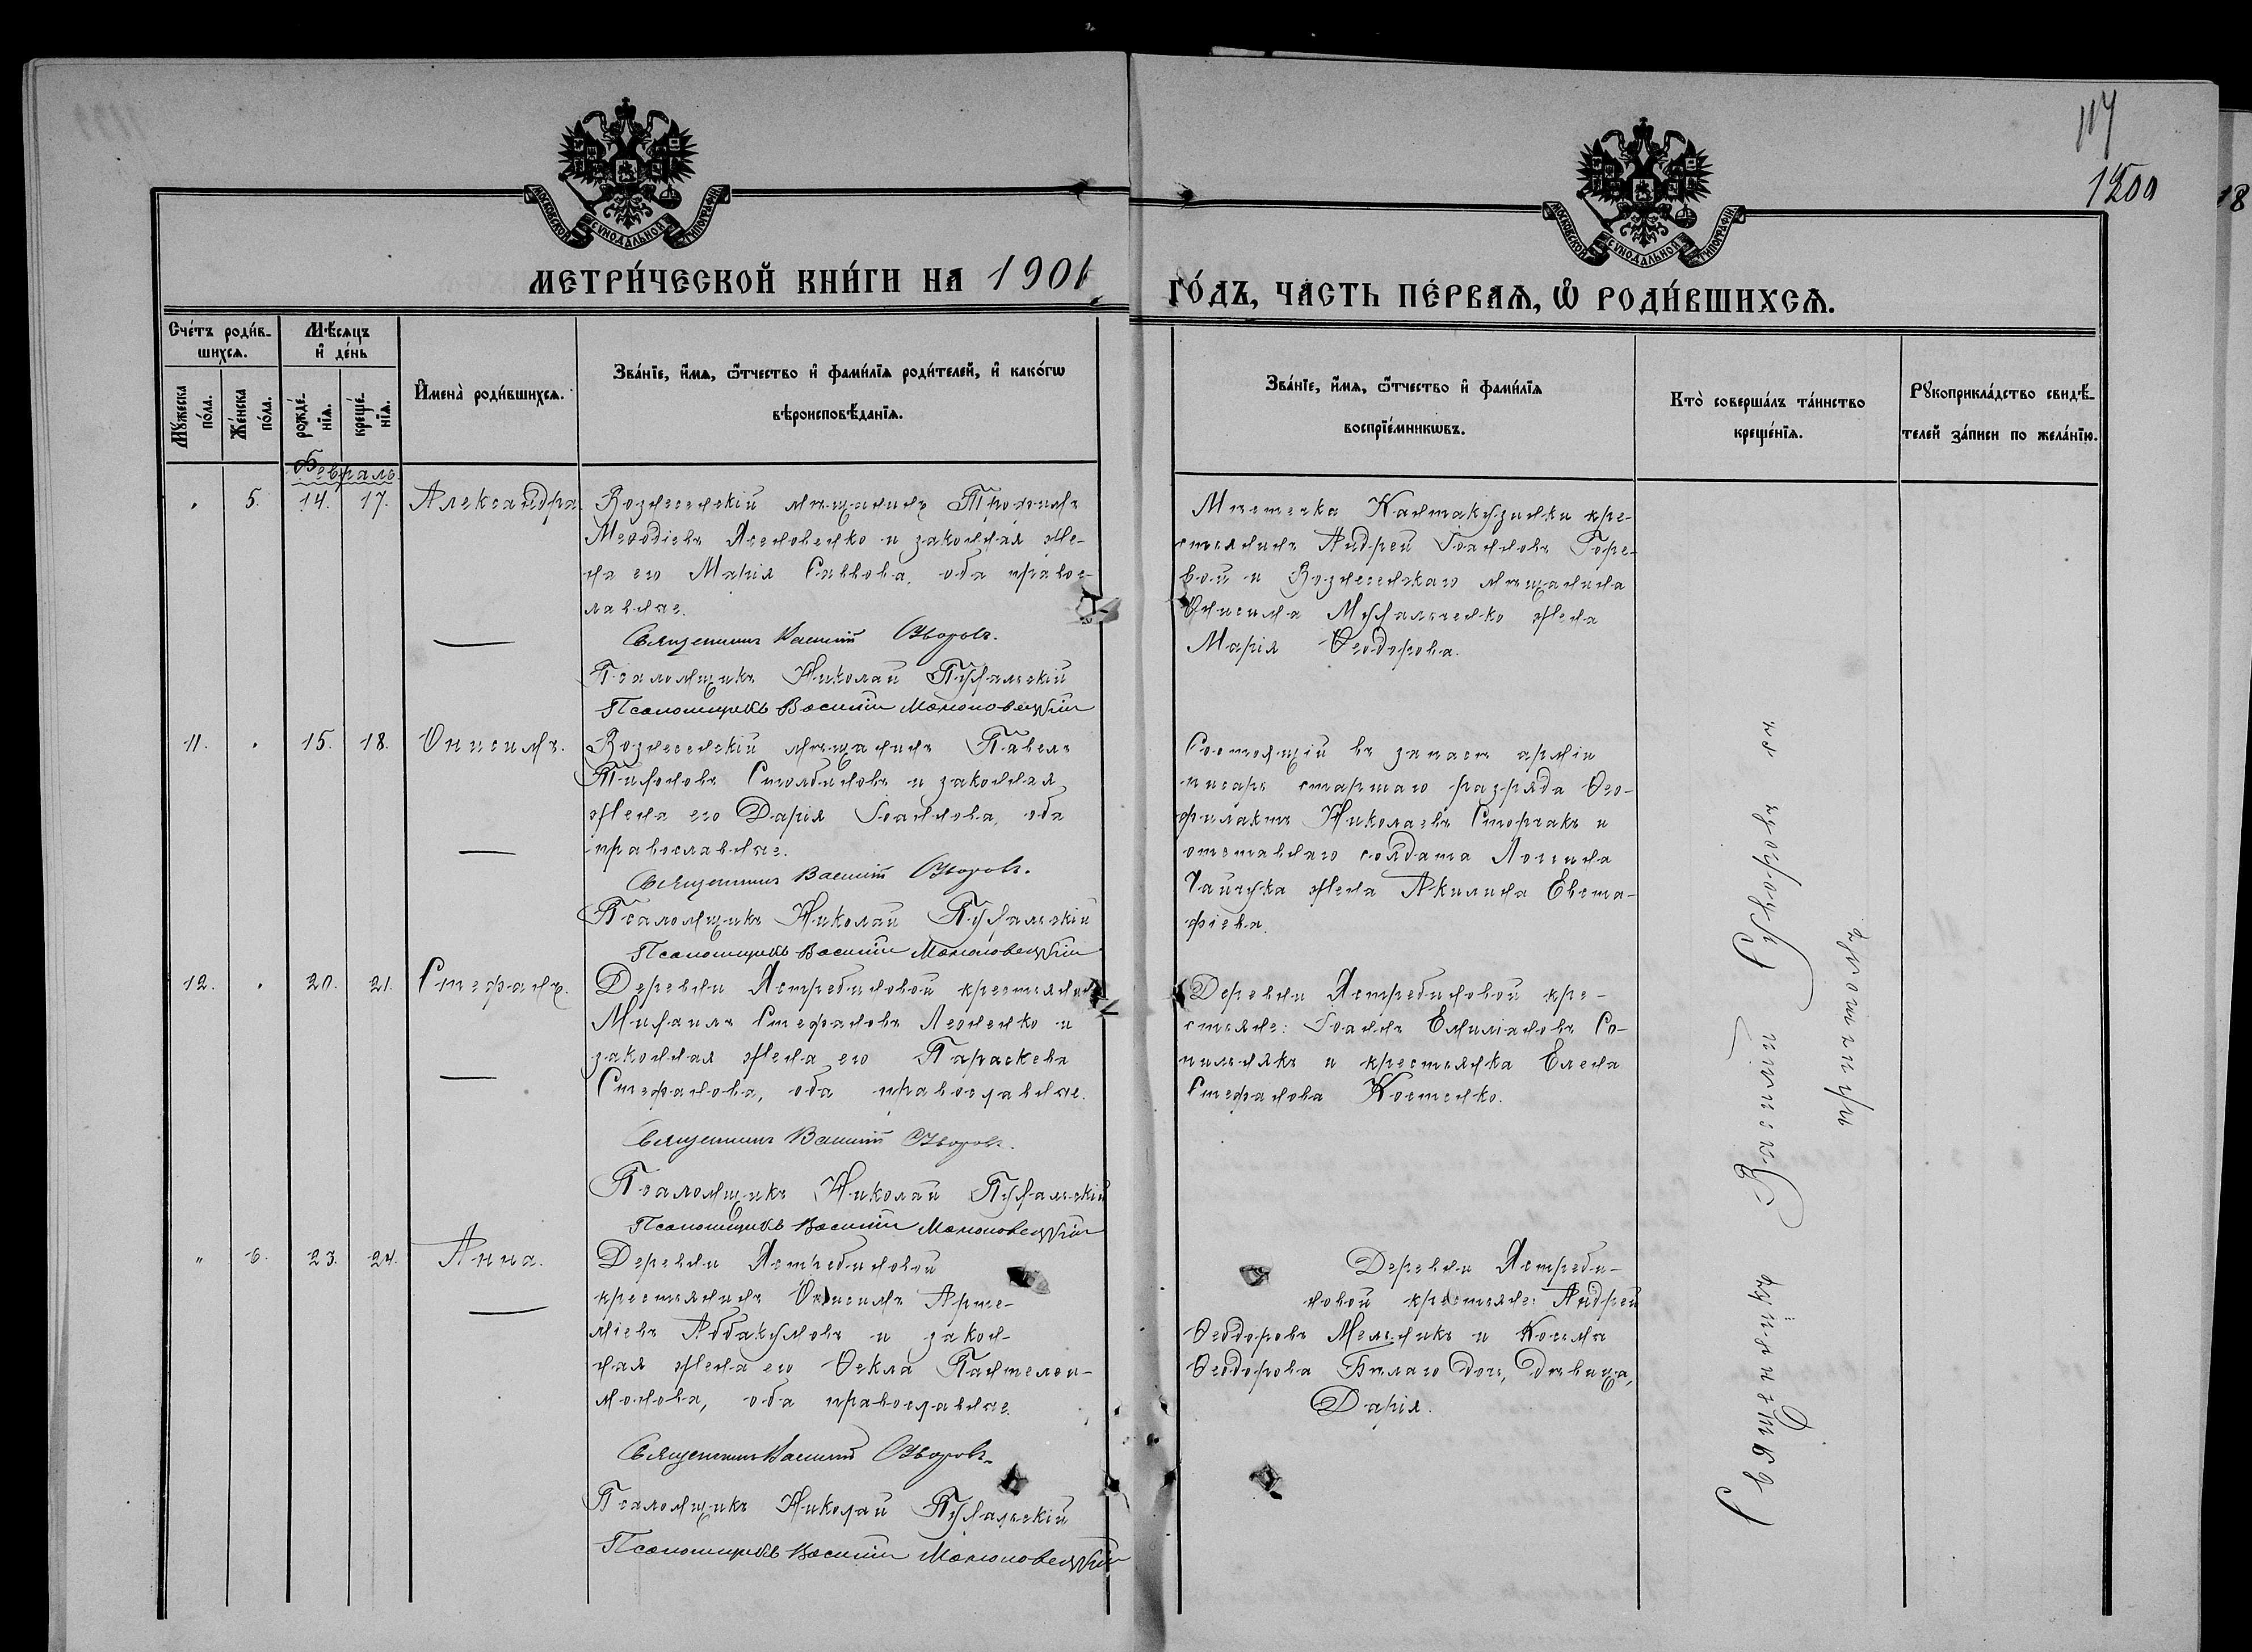 117
1200
18
МОСКОВСКОЙ СѴНОДАЛЬНОЙ ТИПОГРАФІИ
МОСКОВСКОЙ СѴНОДАЛЬНОЙ ТИПОГРАФІИ
МЕТРИ́ЧЕСКОЙ КНИ́ГИ НА 1901
ГО́ДЪ, ЧА́СТЬ ПЕ́РВАѦ, Ѡ РОДИ́ВШИХСѦ.
Сче́тъ роди́в-
шихсѧ.
Мѣ́сѧцъ
и҆ де́нь
Мꙋ́жеска
по́ла.
Же́нска
по́ла.
рожде́-
нїѧ.
креще́-
нїѧ.
И҆мена̀ роди́вшихсѧ.
Зва́нїе, и҆́мѧ, ѻ҆́тчество и҆ фами́лїѧ роди́телей, и҆ како́гѡ
вѣроисповѣ́данїѧ.
Зва́нїе, и҆́мѧ, ѻ҆́тчество и҆ фами́лїѧ
воспрїе́мникѡвъ.
Кто̀ соверша́лъ та́инство
креще́нїѧ.
Рꙋкоприкла́дство свидѣ́-
телей за́писи по жела́нїю.
Февраль
5. 14. 17. Александра
Вознесенскій мѣщанинъ Трофимъ
Меѳодіевъ Ясеновенко и законная же-
на его Марія Саввова, оба правос-
лавные.
Священникъ Василій Яворов.
Псаломщикъ Николай Пухальскій
Псаломщикъ Василій
Мѣстечка Кантакузинки кре-
стьянинъ Андрей Іоанновъ Горе-
вой и Вознесенскаго мѣщанина
Онисима Михальченко жена
Марія Ѳеодорова.
11. 15. 18. Онисимъ.
Вознесенскій мѣщанинъ Павелъ
Тихоновъ Столбиновъ и законная
жена его Дарія Іоаннова, оба
православные.
Священникъ Василій Яворов.
Псаломщикъ Николай Пухальскій
Псаломщикъ Василій
Состоящій въ запасѣ арміи
писарь старшаго разряда Ѳео-
филактъ Николаевъ Сторчакъ и
отставнаго солдата Логгина
Чайчука жена Акилина Евста-
фіева.
12. 20. 21. Стефанъ.
Деревни Ястребиновой крестьянинъ
Михаилъ Стефановъ Леоненко и
законная жена его Параскева
Стефанова, оба православные.
Священникъ Василій Яворов.
Псаломщикъ Николай Пухальскій
Псаломщикъ Василій
Деревни Ястребиновой кре-
стьяне: Іоаннъ Емиліановъ Со-
пильнякъ и крестьянка Елена
Стефанова Костенко.
" 6. 23. 24. Анна.
Деревни Ястребиновой
крестьянинъ Онисимъ Арте-
міевъ Аббакумовъ и закон-
ная жена его Ѳекла Пантелеи-
монова, оба православные.
Священникъ Василій Яворов.
Псаломщикъ Николай Пухальскій
Псаломщикъ Василій
Деревни Ястреби-
новой крестьяне: Андрей
Ѳеодоровъ Мельникъ и Косьмы
Ѳеодорова Бѣлаго дочь, дѣвица,
Дарія.
Священникъ Василій Яворовъ съ
псаломщикомъ